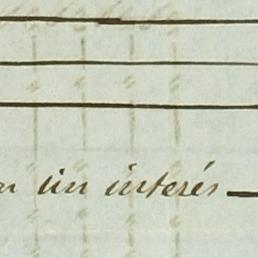 un interés